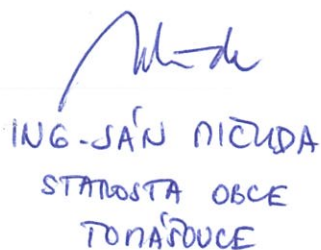 ING. JÁN MIČUDA
STAROSTA OBCE
TOMÁŠOVCE